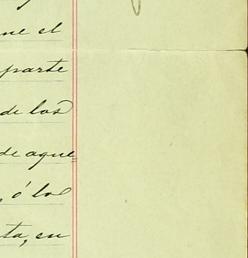 ne el
parte
de los
de aque=
, ó lo
ta, en